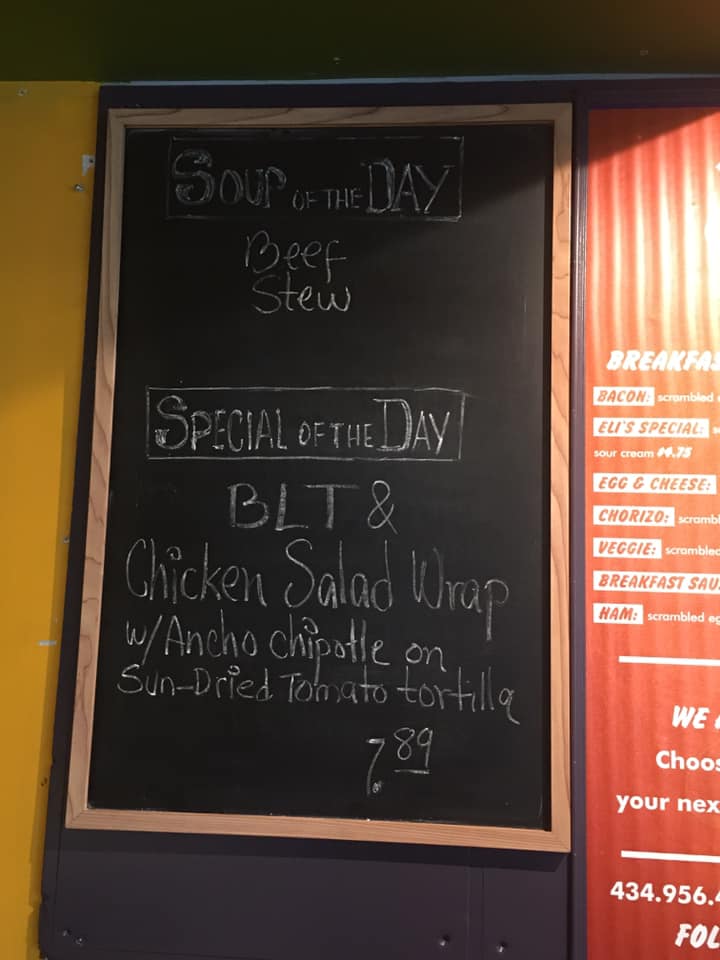 SOUP OF THE DAY
Beef
Stew
SPECIAL OF THE DAY
BLT &
Chicken Salad Wrap
w/Ancho chipotle on
Sun-Dried Tomato tortilla
7.89
BREAKFAS
BACON: scrambled
ELI'S SPECIAL:
sour cream $4.75
EGG & CHEESE:
CHORIZO: scrambl
VEGGIE: scrambled
BREAKFAST SAU
HAM: scrambled eg
WE
Choos
your nex
434.956.4
FOL